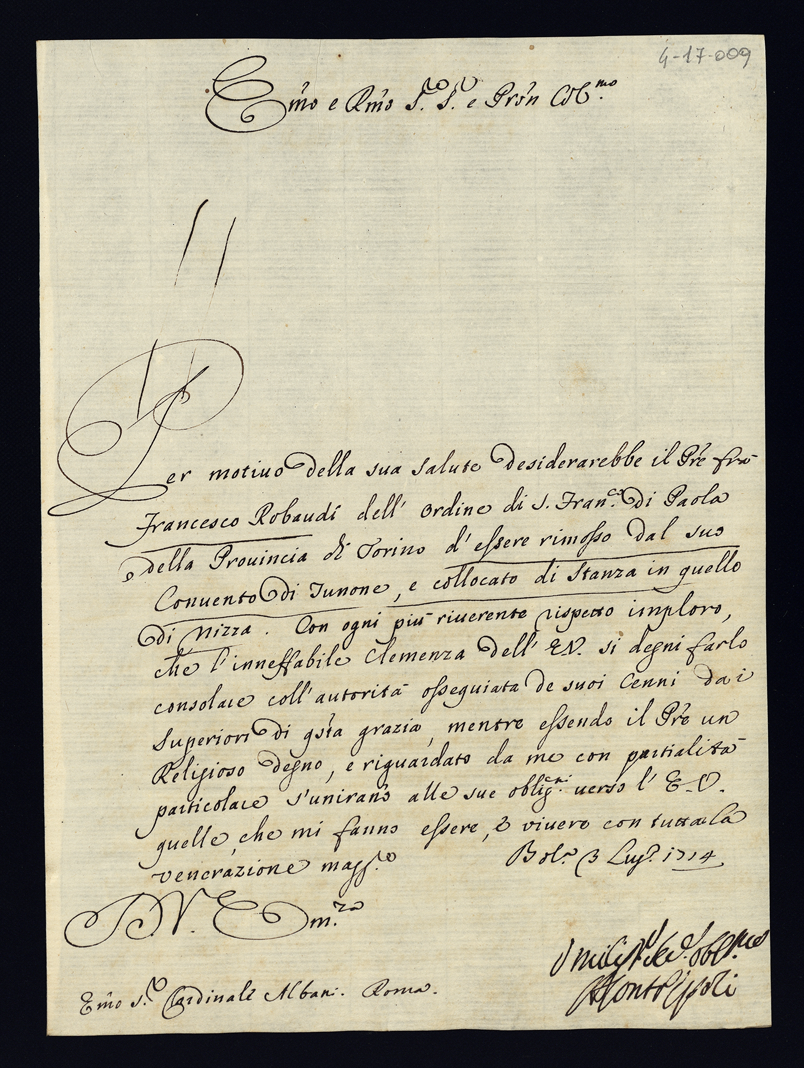 4-17-009
Em̃o e Rm̃o S.re S.r e Prõn Col.mo
Per motiuo della sua salute desiderarebbe il Prẽ fra
Francesco Robaudi dell' ordine di S. Fran.co di Paola
della Provincia di Torino d'essere rimosso dal suo
Conuento di Tunone, e collocato di Stanza in quello
di Nizza. Con ogni più riuerente rispetto imploro,
che l'inneffabile Clemenza dell' E.V. si degni farlo
consolare coll' autorità osseguiata de suoi Cenni da i
Superiori di gsta grazia, mentre essendo il Prẽ un
Religioso degno, e riguardato da me con partialità
particolare s'uniranõ alle sue oblig.ni uerso l' E.V.
quelle, che mi fanno essere, e viuere con tutta la
venerazione magg.re
Bol.a 3 Lug.o 1714
D V. Em.za
Em̃o S.r Cardinale Albani. Roma.